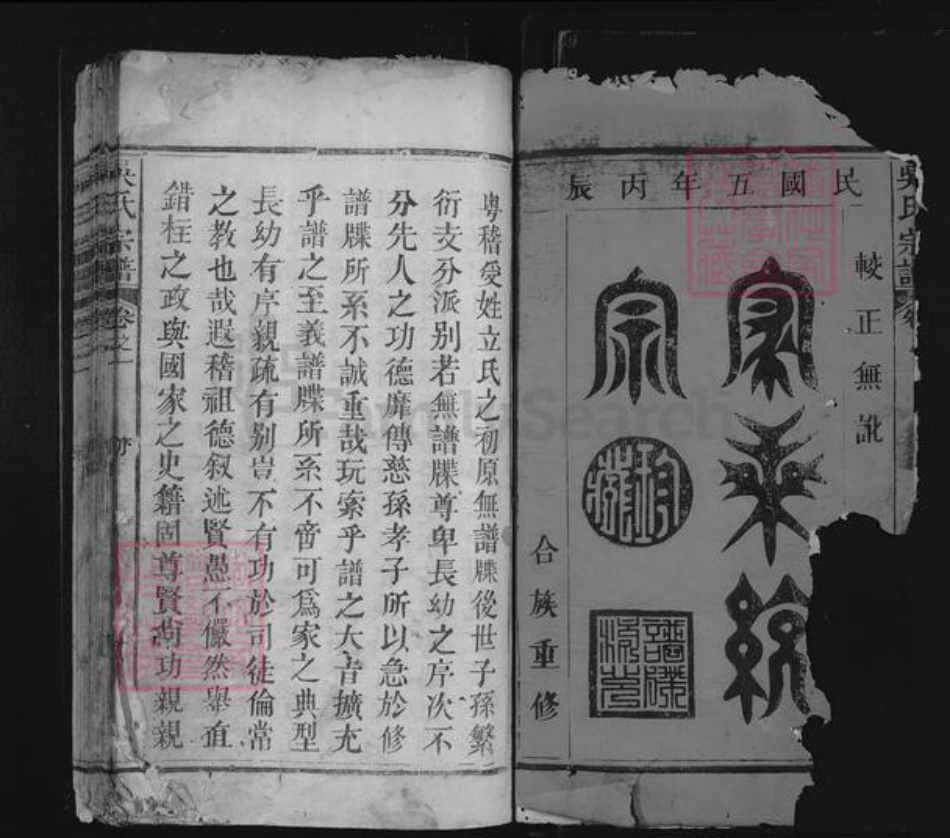 民國五年丙辰
較正無訛
家乘統
宗
珍藏
譜牒
合族重修
吳氏宗譜
粵稽受姓立氏之初原無譜牒後世子孫繁
衍支分派别若無譜牒尊卑長幼之序次不
分先人之功德靡傳慈孫孝子所以急於修
譜牒所系不誠重哉玩索乎譜之大旨擴充
乎譜之至義譜牒所系不啻可為家之典型
長幼有序親疏有别豈不有功於司徒倫常
之教也哉遐稽祖德叙述賢愚不儼然舉直
錯枉之政與國家之史籍固尊賢尚功親親
吳氏宗譜
卷之一
FamilySearch